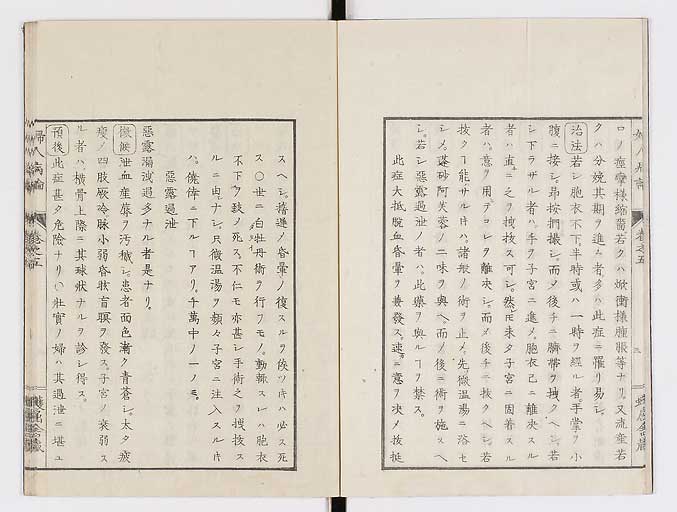 ロノ痙攣様縮窄若クハ焮衝様腫脹等ナリ。又流産若
クハ分娩其期ヲ進ム者多ハ此症ニ罹リ易シ。
治法若シ胞衣不下半時或ハ一時ヲ經ル者。手掌ヲ小
腹ニ按シ。昻按捫撮シ。而〆後チニ臍帶ヲ拽クヘシ。若
シ下ラザル者ハ。手ヲ子宮ニ進メ。胞衣已ニ離決スル
者ハ直ニ之ヲ拽拔ス可シ。然𪜈未タ子宮ニ固着スル
者ハ。意ヲ用テコレヲ離決シ。而〆後チニ拔クヘシ。若
拔クヿ能サル片ハ。諸般ノ術ヲ止メ。先微温湯ニ浴セ
シメ。礠砂阿芙蓉ノ二味ヲ與ヘ。而ノ後ニ術ヲ施スヘ
シ。若シ惡露過泄ノ者ハ。此藥ヲ與ルヿヲ禁ス。
此症大抵脱血昏暈ヲ兼發ス。速ニ意ヲ決メ拔挺
スヘシ。擔遷ノ昏暈ノ復スルヲ俟ツ片ハ必ス死
ス〇世ニ白牡丹術ヲ行フモノ。動輒スレハ胞衣
不下ヲ致ノ死ス。不仁モ亦甚シ手術之ヲ拽拔ス
ルニ由ナシ。只微温湯ヲ頻々子宮ニ注入スル片
ハ。僥倖ニ下ルヿアリ。千萬中ノ一ノミ。
惡露過泄
惡露湯洩過多ナル者是ナリ。
徴候泄血産蓐ヲ汚穢シ。患者面色漸ク青蒼シ。太タ疲
瘦ノ四肢厥冷脉小弱昏眩盲瞑ヲ發ス。子宮ノ衰弱ス
ル者ハ横骨上際ニ其球狀ナルヲ診シ得ス。
預後此症甚タ危險ナリ〇壮實ノ婦ハ其過泄ニ堪ユ
婦人病論
卷之五